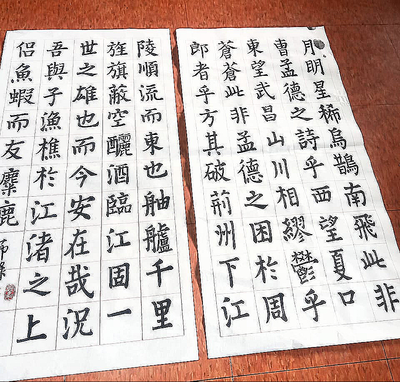 月明星稀烏鵲南飛此非
曹孟德之詩乎西望夏口
東望武昌山川相繆鬱乎
蒼蒼此非孟德之困於周
郎者乎方其破荊州下江
陵順流而東也舳艫千里
旌旗蔽空釃酒臨江固一
世之雄也而今安在哉況
吾與子漁樵於江渚之上
侶魚蝦而友麋鹿